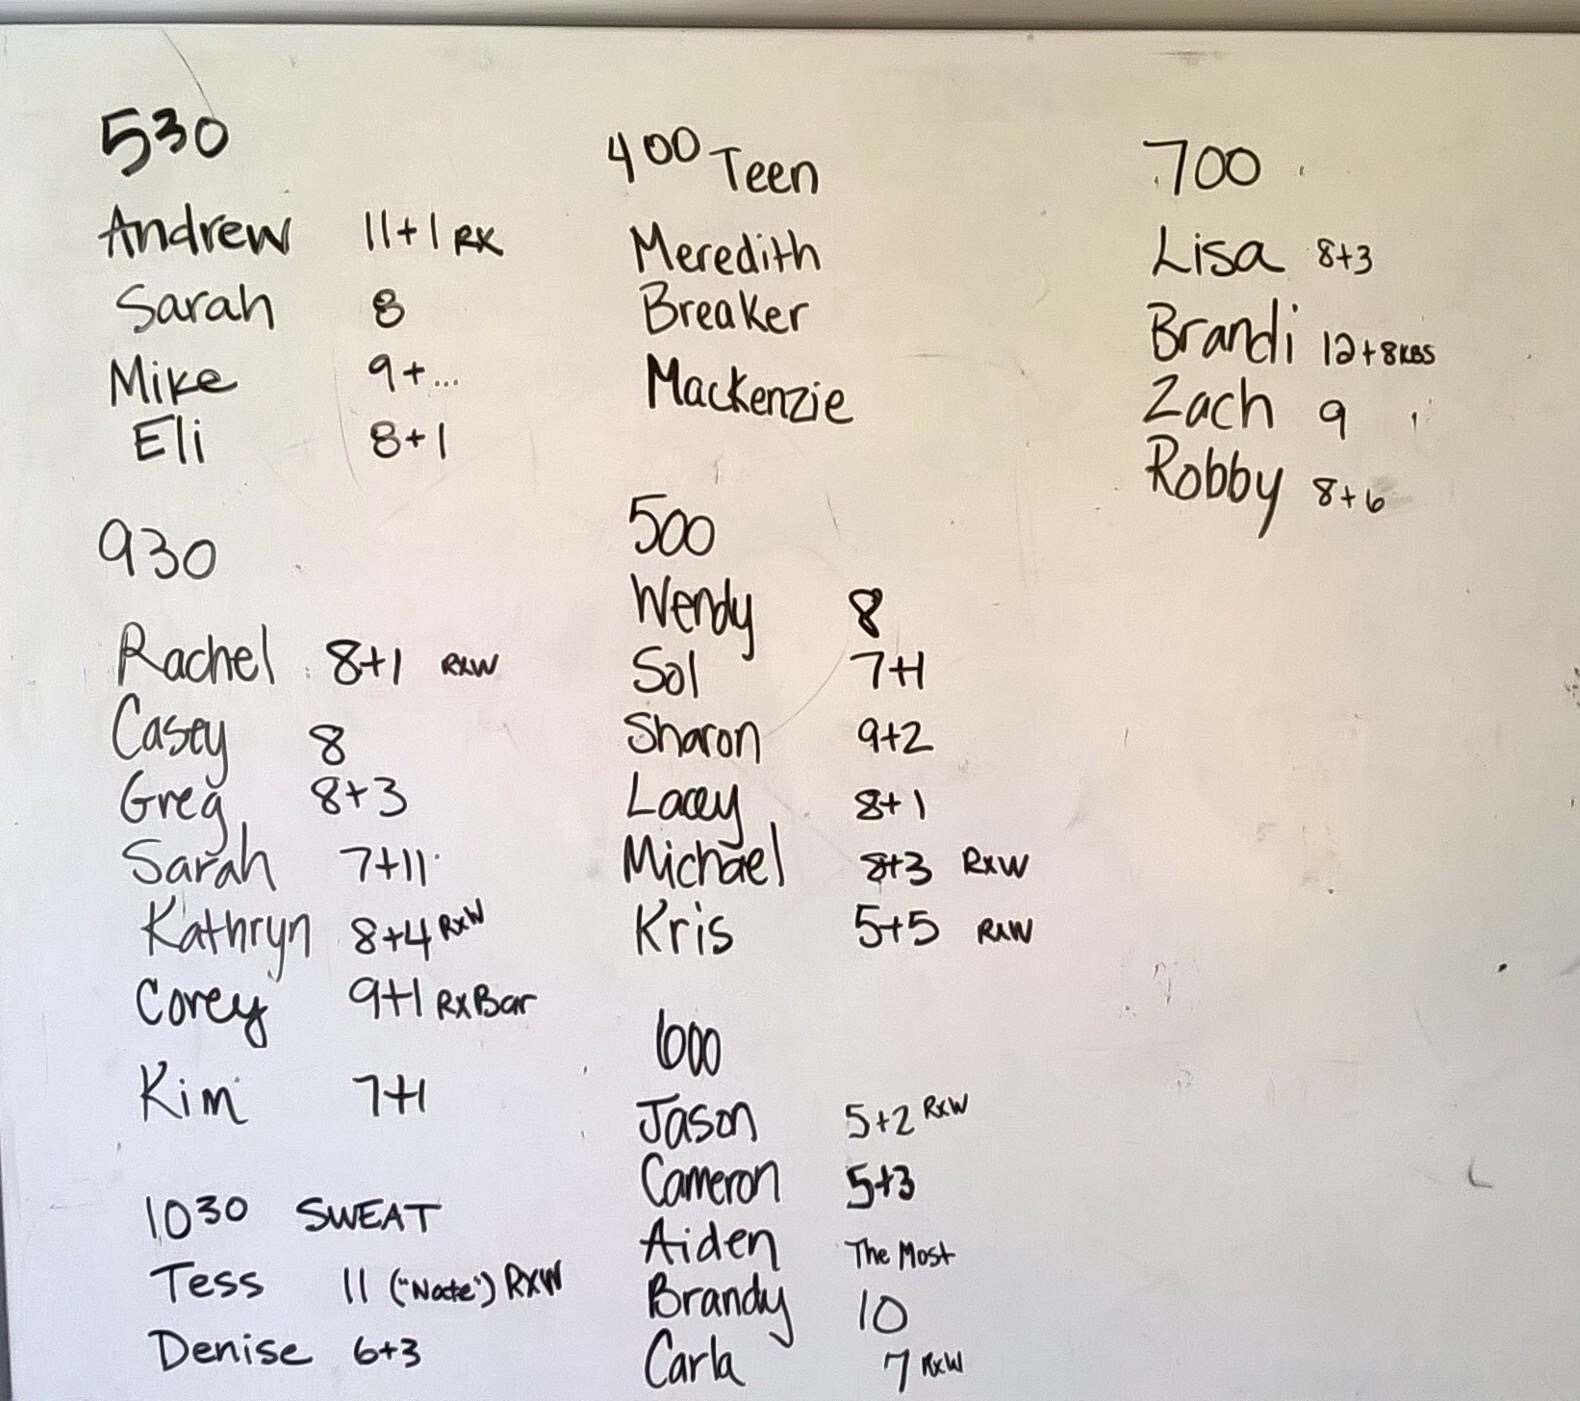 530
Andrew 11+1 RX
Sarah 8
Mike 9+...
Eli 8+1
930
Rachel 8+1 RXW
Casey 8
Greg 8+3
Sarah 7+11
Kathryn 8+4 RXW
Corey 9+1 RxBar
Kim 7+1
1030 SWEAT
Tess 11 ("Nate") RXW
Denise 6+3
400 Teen
Meredith
Breaker
Mackenzie
500
Wendy 8
Sol 7+1
Sharon 9+2
Lacey 8+1
Michael 8+3 RxW
Kris 5+5 RxW
600
Jason 5+2 RxW
Cameron 5+3
Aiden The Most
Brandy 10
Carla 7 RxW
700
Lisa 8+3
Brandi 12+8KBS
Zach 9
Robby 8+6